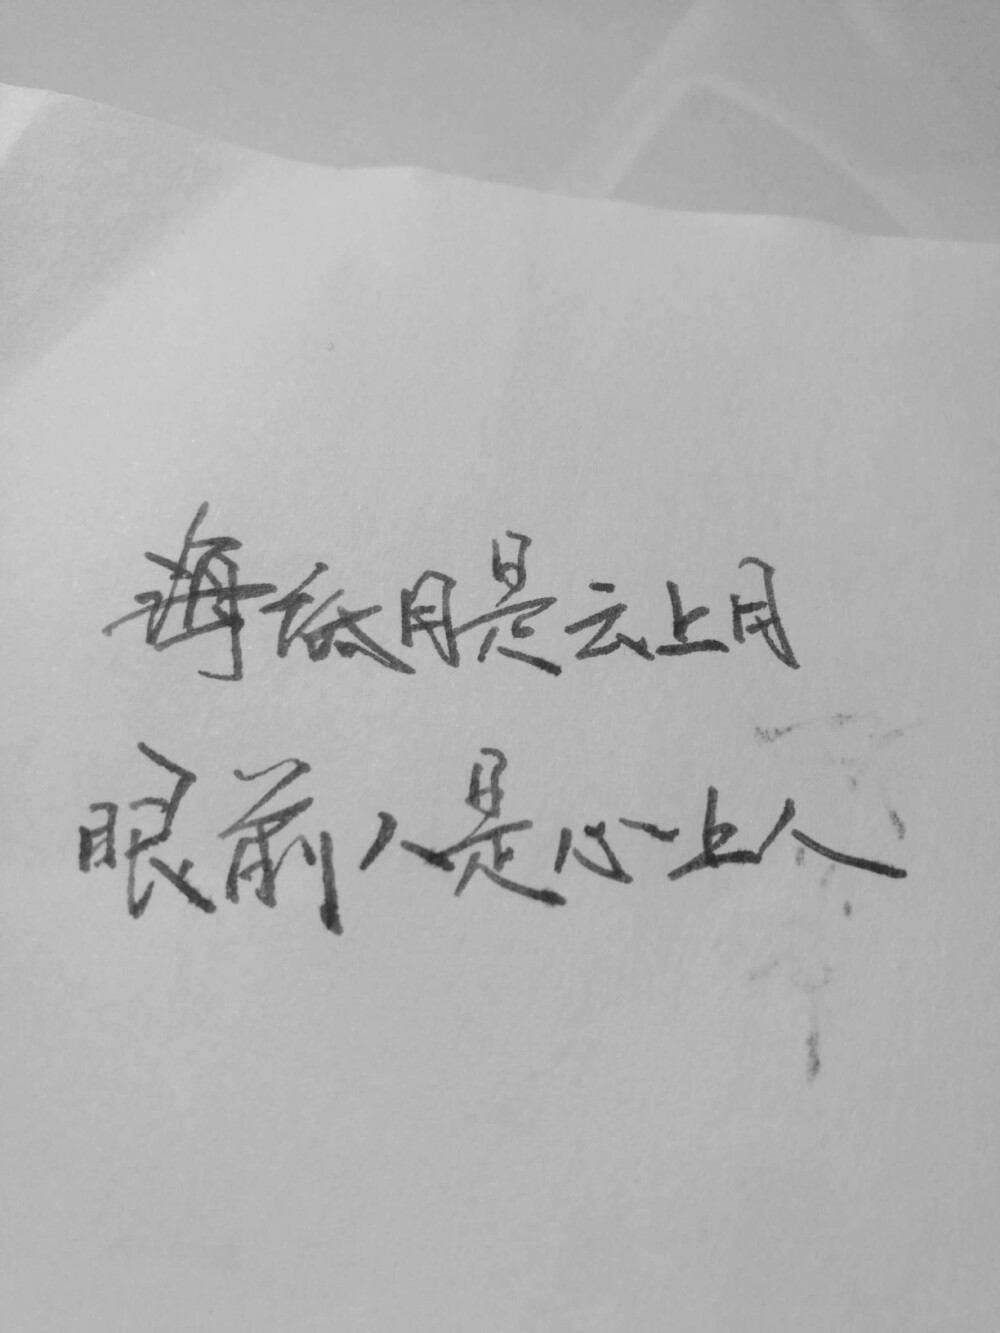 海底月是云上月
眼前人是心上人